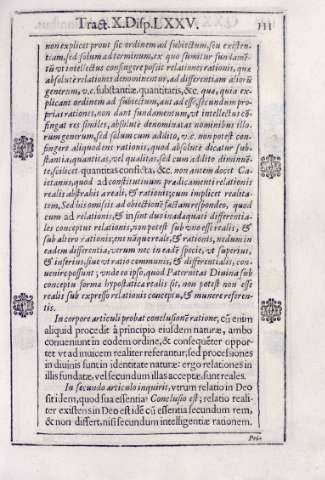 Tract. X. Disp. LXXV. 111
non explicet prout sic ordinem ad subiectum, seu existen-
tiam, sed solum ad terminum, ex quo sumitur fundamẽ-
tũ vt intellectus confingere possit relationes rationis, quæ
absolutè relationes denominentur, ad differentiam aliorũ
generum, v.c. substantiæ, quantitatis, &c. quæ, quia ex-
plicant ordinem ad subiectum, aut ad esse, secundum pro-
prias rationes, non dant fundamentum, vt intellectus cõ-
fingat res similes, absolutè denominatas nominibus illo-
rum generum, sed solum cum addito, v.c. non potest con-
fingere aliquod ens rationis, quod absolutè dicatur sub-
stantia, quantitas, vel qualitas, sed cum addito diminuẽ-
te, scilicet quantitas conficta, &c. non autem docet Ca-
ietanus, quod ad constitutiuum prædicamenti relationis
realis abstrahit à reali, & rationis; cum implicet realita-
tem, Sed his omissis ad obiectionẽ factam respondeo, quod
cum ad relationis, & in sint duo inadæquati differentia-
les conceptus relationis, non potest sub vno esse realis, &
sub altero rationis; nec neque realis, & rationis, nedum in
eadem differentia, verum nec in eadẽ specie, vt superius,
& inferius, siue vt ratio communis, & differentialis, con-
uenire possunt; vnde eo ipso, quod Paternitas Diuina sub
conceptu formæ hypostatica realis sit, non potest non esse
realis sub expresso relationis conceptu, & munere referen-
tis.
In corpore articuli probat conclusionẽ ratione, cũ enim
aliquid procedit à principio eiusdem naturæ, ambo
conueniunt in eodem ordine, & consequẽter oppor-
tet vt ad inuicem realiter referantur, sed processiones
in diuinis sunt in identitate naturæ: ergo relationes in
illis fundatæ, vel secundum illas acceptæ, sunt reales.
In secundo articulo inquirit, vtrum relatio in Deo
sit idem, quod sua essentia? Conclusio est; relatio reali-
ter existens in Deo est idẽ cũ essentia secundum rem,
& non differt, nisi secundum intelligentiæ rationem.
Pri-